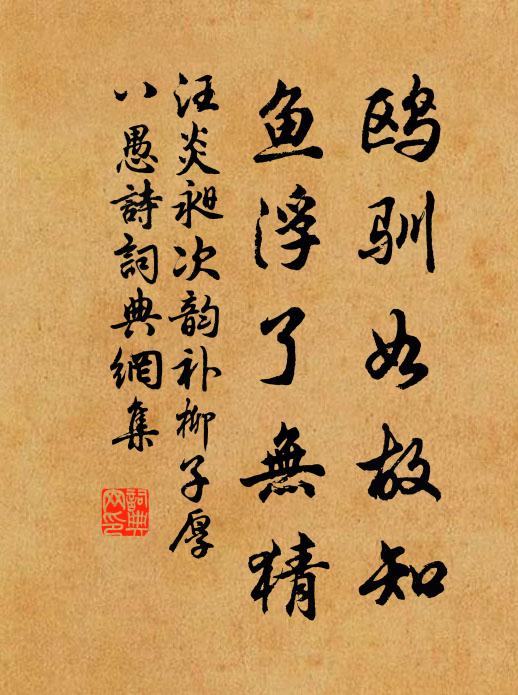 鸥驯如故知
鱼浮了無猜
汪炎昶次韵补柳子厚
八愚詩詞典網集
詞典網印